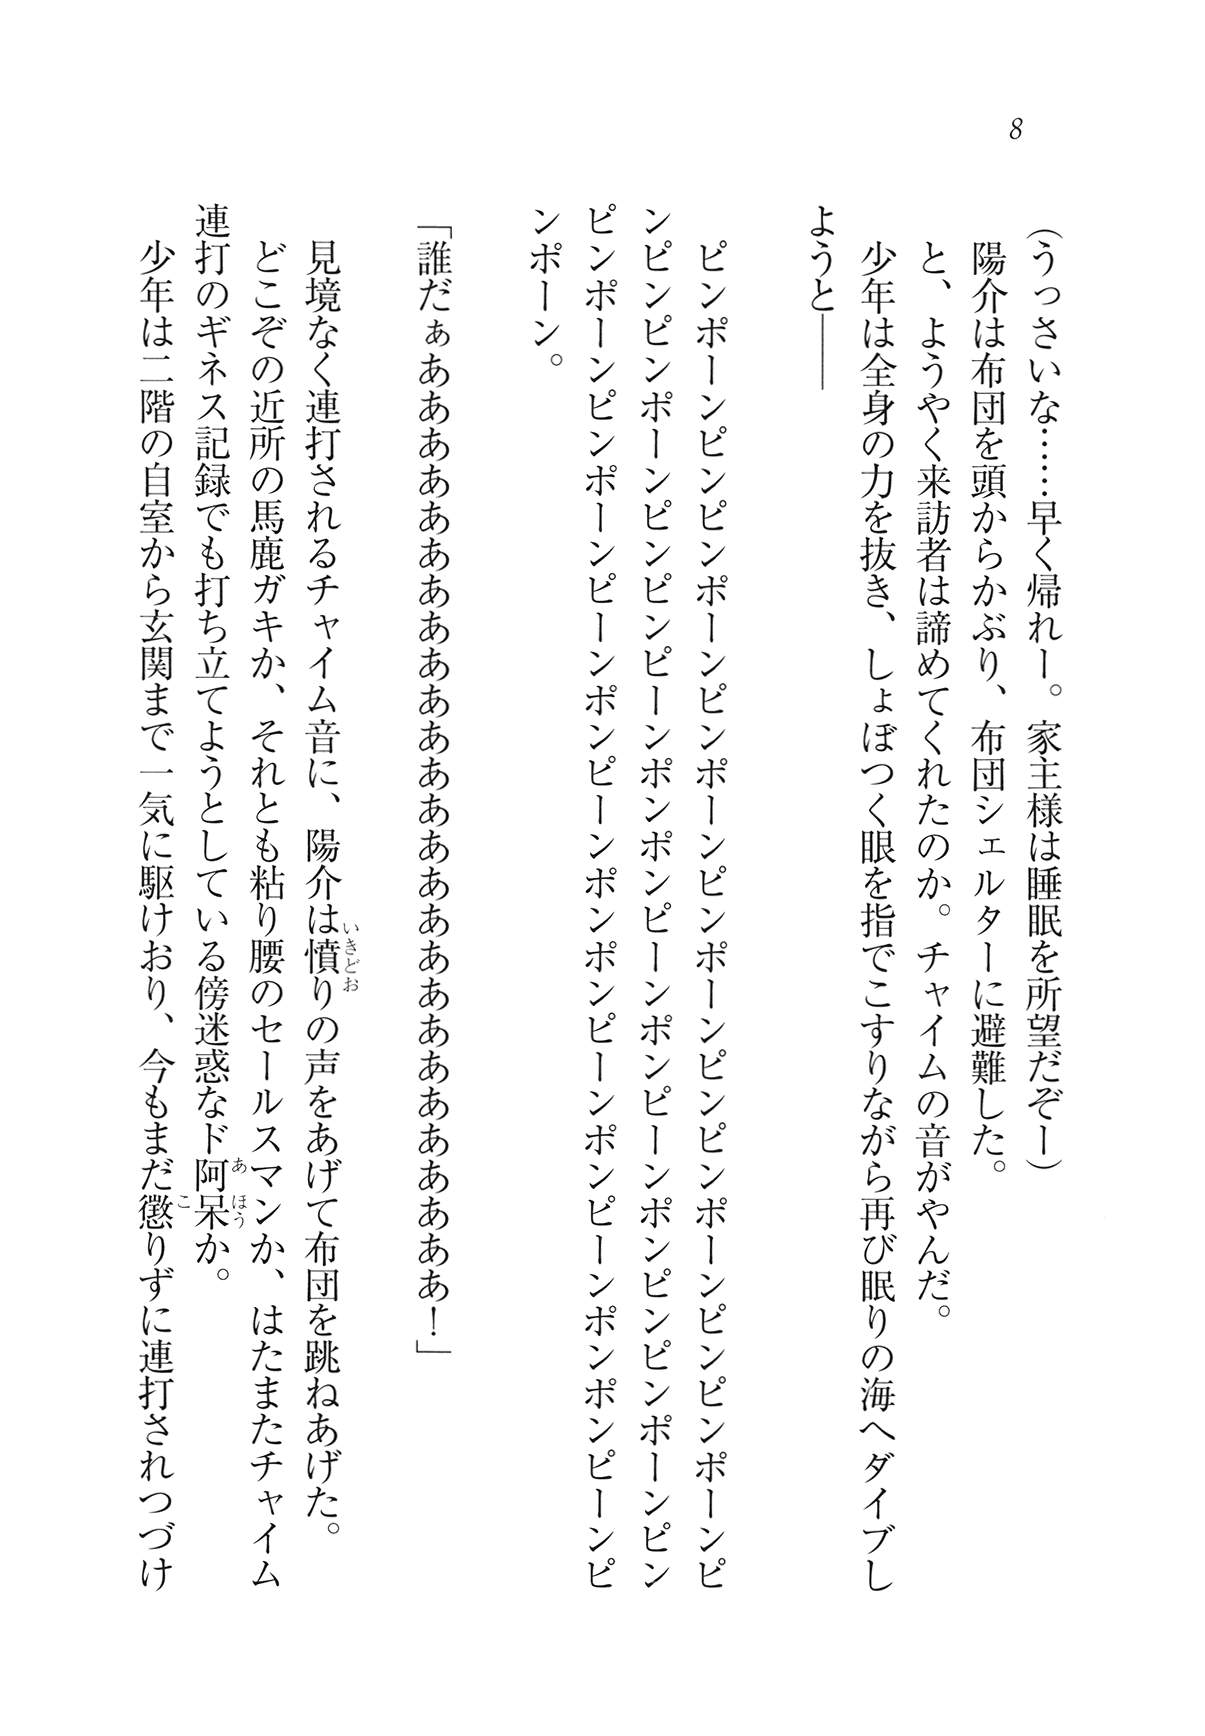 8
（うっさいな……早く帰れー。家主様は睡眠を所望だぞー）
陽介は布団を頭からかぶり、布団シェルターに避難した。
と、ようやく来訪者は諦めてくれたのか。チャイムの音がやんだ。
少年は全身の力を抜き、しょぼつく眼を指でこすりながら再び眠りの海へダイブし
ようと――
ピンポーンピンピンポーンピンポーンピンポーンピンピンポーンピンピンポーンピ
ンピンピンポーンピンピンピーンポンポンピーンポンピーンポンピンピンポーンピン
ピンポーンピンポーンピーンポンピーンポンポンピーンポンピーンポンポンピーンピ
ンポーン。
「誰だぁあああああああああああああああああああああああああ！」
見境なく連打されるチャイム音に、陽介は憤りの声をあげて布団を跳ねあげた。
どこぞの近所の馬鹿ガキか、それとも粘り腰のセールスマンか、はたまたチャイム
連打のギネス記録でも打ち立てようとしている傍迷惑なド阿呆か。
少年は二階の自室から玄関まで一気に駆けおり、今もまだ懲りずに連打されつづけ